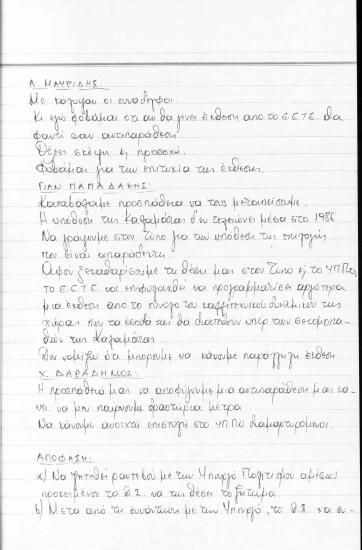 Α. ΜΑΥΡΙΔΗΣ:
Με καλύψαν οι συνάδελφοι.
Κι εγώ φοβάμαι ότι αν θα γίνει έκθεση από το Ε.Ε.Τ.Ε. θα
φανεί σαν αντιπαράθεση.
Θέλει σκέψη & προσοχή.
Φοβάμαι για την επιτυχία της έκθεσης.
ΓΙΑΝ. ΠΑΠΑΔΑΚΗΣ:
Καταβάλαμε προσπάθεια να τους μεταπείσουμε.
Η υπόθεση της Καλαμάτας δεν τελειώνει μέσα στο 1986
Να γράψουμε στον Τύπο για την υπόθεση της επιλογής
που είναι απαράδεκτη.
Αφού ξεκαθαρίσουμε τη θέση μας στον Τύπο & το ΥΠ.ΠΟ,
το Ε.Ε.Τ.Ε να επιφυλαχθεί να προγραμματίσει αργότερα
μια έκθεση από το σύνολο του καλλιτεχνικού δυναμικού της
χώρας που τα έσοδά της θα διατεθούν υπέρ των σεισμοπα-
θών της Καλαμάτας
Δεν νομίζω ότι μπορούμε να κάνουμε παράλληλη έκθεση.
Χ. ΔΑΡΑΔΗΜΟΣ:
Η προσπάθειά μας να αποφύγουμε μια αντιπαράθεση μας κά-
νει να μην παίρνουμε δραστήρια μέτρα.
Να κάνουμε ανοιχτή επιστολή στο ΥΠΠΟ διαμαρτυρόμενοι.
ΑΠΟΦΑΣΗ:
α) Να ζητηθεί ραντεβού με την Υπουργό Πολιτισμού αμέσως
προκειμένου το Δ.Σ. να της θέσει το ζήτημα.
β) Μετά από τη συνάντηση με την Υπουργό, το Δ.Σ. να συ-